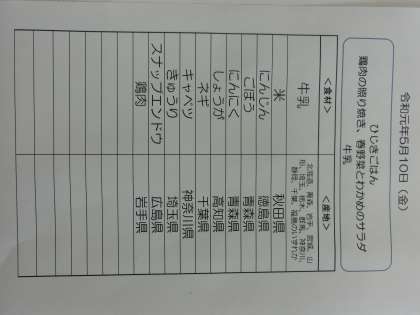 令和元年5月10日（金）
ひじきごはん
鶏肉の照り焼き、春野菜とわかめのサラダ
牛乳
＜食材＞ ＜産地＞
牛乳 北海道、青森、岩手、宮城、山形、埼玉、栃木、群馬、神奈川、静岡、千葉、福島のいずれか
米 秋田県
にんじん 徳島県
ごぼう 青森県
にんにく 青森県
しょうが 高知県
ネギ 千葉県
キャベツ 神奈川県
きゅうり 埼玉県
スナップエンドウ 広島県
鶏肉 岩手県